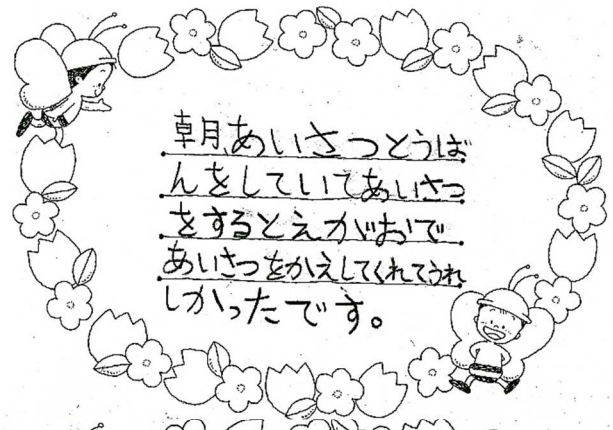 朝、あいさつとうば
んをしていてあいさつ
をするとえがおで
あいさつをかえしてくれてうれ
しかったです。